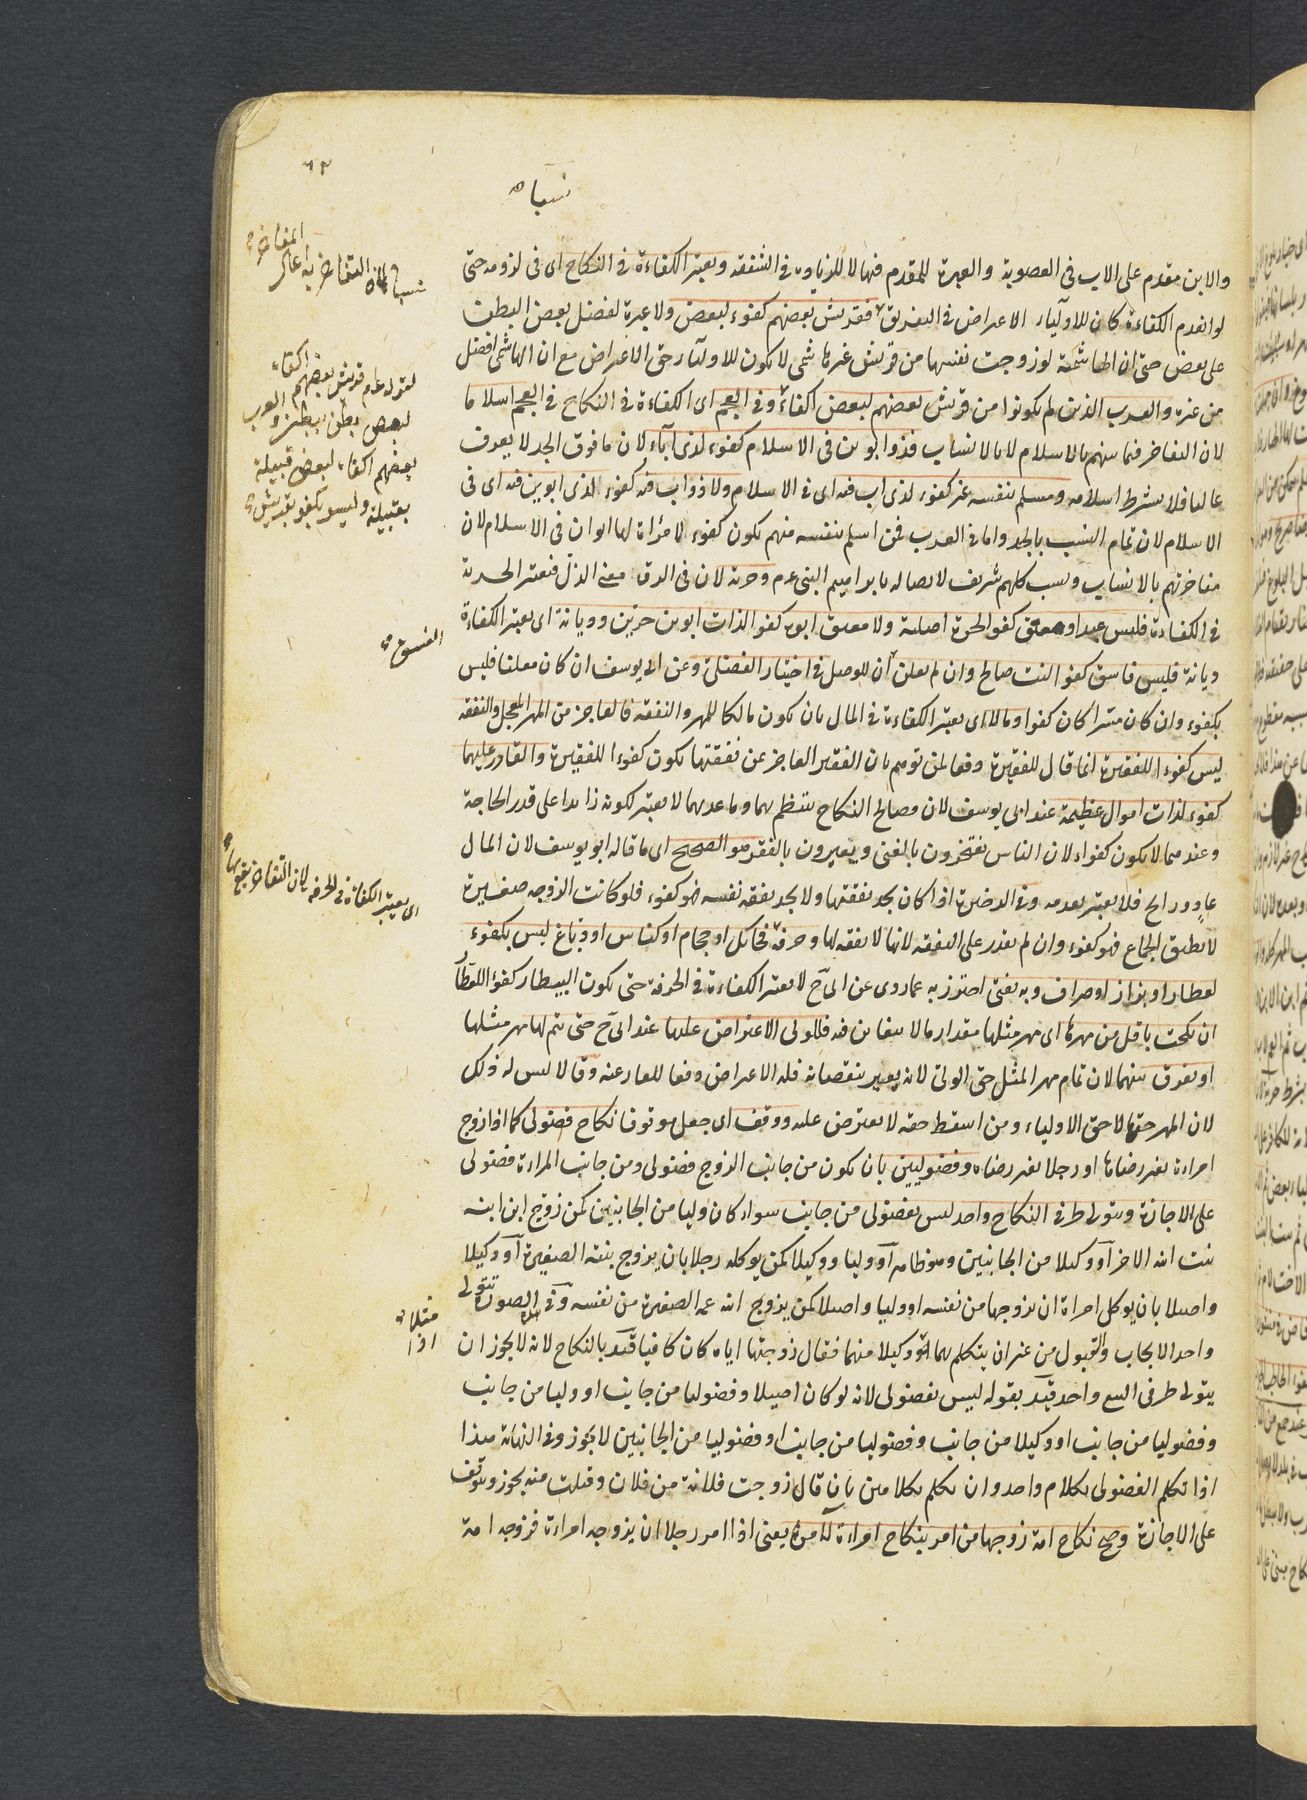 ٦٢
نسبا
والابن مقدم على الاب فى العصوبة والعبرة للمقدم فيها لا للزيادة فى الشفقة ويعتبر الكفاءة فى النكاح اى فى لزومه حتى
لو انعدم الكفاءة كان للاولياء الاعتراض فى التفريق فقريش بعضهم كفوء لبعض ولا عبرة لفضل بعض البطن
على بعض حتى ان الهاشمية لو زوجت نفسها من قريش غير هاشمى لا يكون للاولياء حق الاعتراض مع ان الهاشمى افضل
من غيره والعرب الذين لم يكونوا من قريش بعضهم لبعض اكفاء وفى العجم اى الكفاءة فى النكاح فى العجم اسلاما
لان التفاخر فيما بينهم بالاسلام لا بالانساب فذو ابوين فى الاسلام كفوء لذى آباء لان ما فوق الجد لا يعرف
غالبا فلا يشترط اسلامه ومسلم بنفسه غير كفوء لذى اب فيه اى فى الاسلام ولا ذو اب فيه كفوء لذى ابوين فيه اى فى
الاسلام لان تمام النسب بالجد واما فى العرب فمن اسلم بنفسه منهم يكون كفوء لامرأة لها ابوان فى الاسلام لان
مفاخرتهم بالانساب ونسب كلهم شريف لاتصاله بابراهيم النبى عم وحرية لان فى الرق معنى الذل فيعتبر الحرية
فى الكفاءة فليس عبد او معتق كفو الحرة اصلية ولا معتق ابوه كفو الذات ابوين حرين وديانة اى يعتبر الكفاءة
ديانة فليس فاسق كفو البنت صالح وان لم يعلن ان للوصل فى اختيار الفضلى وعن ابى يوسف ان كان معلنا فليس
بكفوء وان كان مستترا كان كفوا ومالا اى يعتبر الكفاءة فى المال بان يكون مالكا للمهر والنفقة فالعاجز من المهر المعجل والنفقة
ليس كفوء اللفقيرة انما قال للفقيرة دفعا لمن توهم بان الفقير العاجز عن نفقتها يكون كفوءا للفقيرة والقادر عليهما
كفوء لذات اموال عظيمة عند ابى يوسف لان مصالح النكاح تنتظم بهما وما عداهما لا يعتبر لكونه زائدا على قدر الحاجة
وعندهما لا يكون كفواء لان الناس يفتخرون بالغنى ويعيرون بالفقر هو الصحيح اى ما قاله ابو يوسف لان المال
غاد ورايح فلا يعتبر بعدمه وفى الذخيرة اذا كان يجد نفقتها ولا يجد نفقة نفسه فهو كفوء فلو كانت الزوجة صغيرة
لا تطيق الجماع فهو كفوء وان لم يقدر على النفقة لانها لا نفقة لها وحرفة فحائك او حجام او كناس او دباغ ليس بكفوء
لعطار او بزاز او صراف وبه يفتى احترز به عما روى عن ابى ح لا يعتبر الكفاءة فى الحرفة حتى يكون البيطار كفوء اللعطار
ان نكحت باقل من مهرها اى مهر مثلها مقدار ما لا يتغابن فيه فللولى الاعتراض عليها عند ابى ح حتى يتم لها مهر مثلها
او يفرق بينهما لان تمام مهر المثل حق الولى لانه يعير بنقصانه فله الاعتراض دفعا للعار عنه وقالا ليس له ذلك
لان المهر حقها لا حق الاولياء ومن اسقط حقه لا يعترض عليه ووقف اى جعل موقوفا نكاح فضولى كما اذا زوج
امراءة بغير رضاها او رجلا بغير رضاه وفضوليين بان يكون من جانب الزوج فضولى ومن جانب المراءة فضولى
على الاجازة ويتولى طرفى النكاح واحد ليس بفضولى من جانب سواء كان وليا من الجانبين كمن زوج ابن ابنه
بنت ابنه الاخر او وكيلا من الجانبين وهو ظاهر او وليا ووكيلا كمن يوكله رجلا بان يزوج بنته الصغيرة او وكيلا
واصيلا بان يوكل امراة ان يزوجها من نفسه او وليا واصيلا كمن يزوج ابنة عمه الصغيرة من نفسه وفى هذه الصورة تتولى
واحد الايجاب والقبول من غير ان يتكلم بهما وكيلا منهما فقال زوجتها اياه كان كافيا قيد بالنكاح لانه لا يجوز ان
يتولى طرفى البيع واحد قيد بقوله ليس بفضولى لانه لو كان اصيلا وفضوليا من جانب او وليا من جانب
وفضوليا من جانب او وكيلا من جانب وفضوليا من جانب او فضوليا من الجانبين لا يجوز وفى النهاية هذا
اذا تكلم الفضولى بكلام واحد وان تكلم بكلامين بان قال زوجت فلانة من فلان وقبلت منه يجوز ويتوقف
على الاجازة وصح نكاح امة زوجها من امر بنكاح امراءة لآمره يعنى اذا امر رجلا ان يزوجه امراءة فزوجه امة
نسبا لان التفاخر به
لقوله عم قريش بعضهم اكفاء
لبعض بطن ببطن والعرب
بعضهم اكفاء لبعض قبيلة
بقبيلة وليس بكفو بقريش
الفسق
اى يعتبر الكفاءة فى الحرفة لان التفاخر يقع بها
مثلا
اذا